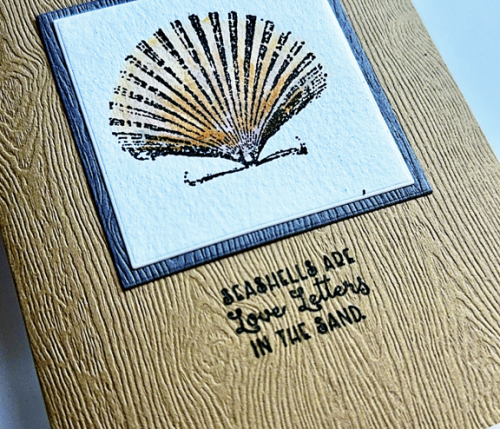 SEASHELLS ARE
Love Letters
IN THE SAND.